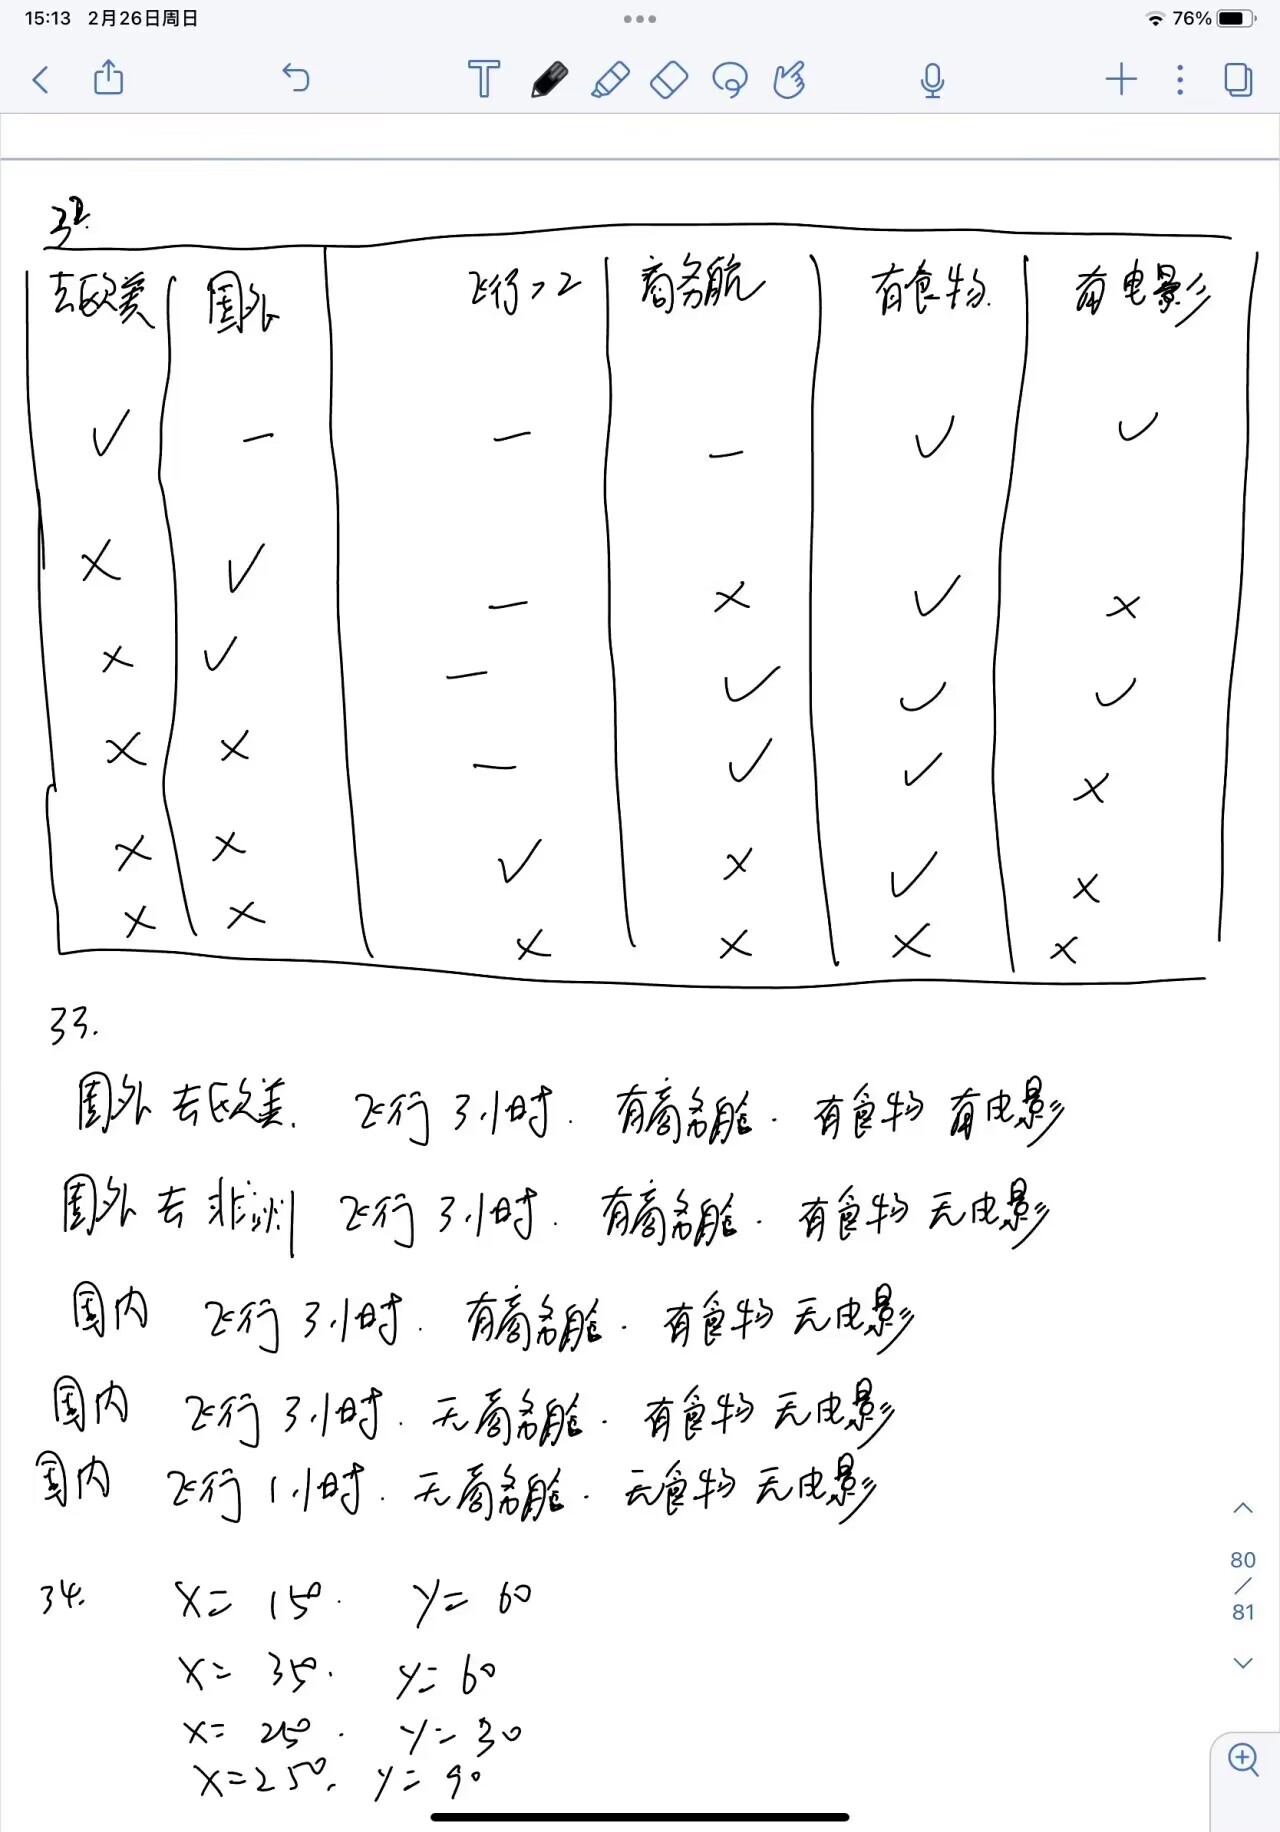 15:13 2月26日周日 76%
T
32.
去欧美 国外 飞行>2 商务舱 有食物. 有电影
✓ — — — ✓ ✓
× ✓ — × ✓ ×
× ✓ — ✓ ✓ ✓
× × — ✓ ✓ ×
× × ✓ × ✓ ×
× × × × × ×
33.
国外 去欧美. 飞行3小时. 有商务舱. 有食物 有电影
国外 去非洲 飞行3小时. 有商务舱. 有食物 无电影
国内 飞行3小时. 有商务舱. 有食物 无电影
国内 飞行3小时. 无商务舱. 有食物 无电影
国内 飞行1小时. 无商务舱. 无食物 无电影
34. x=150. y=60
x=350. y=60
x=250. y=30
x=250. y=90
80
/
81